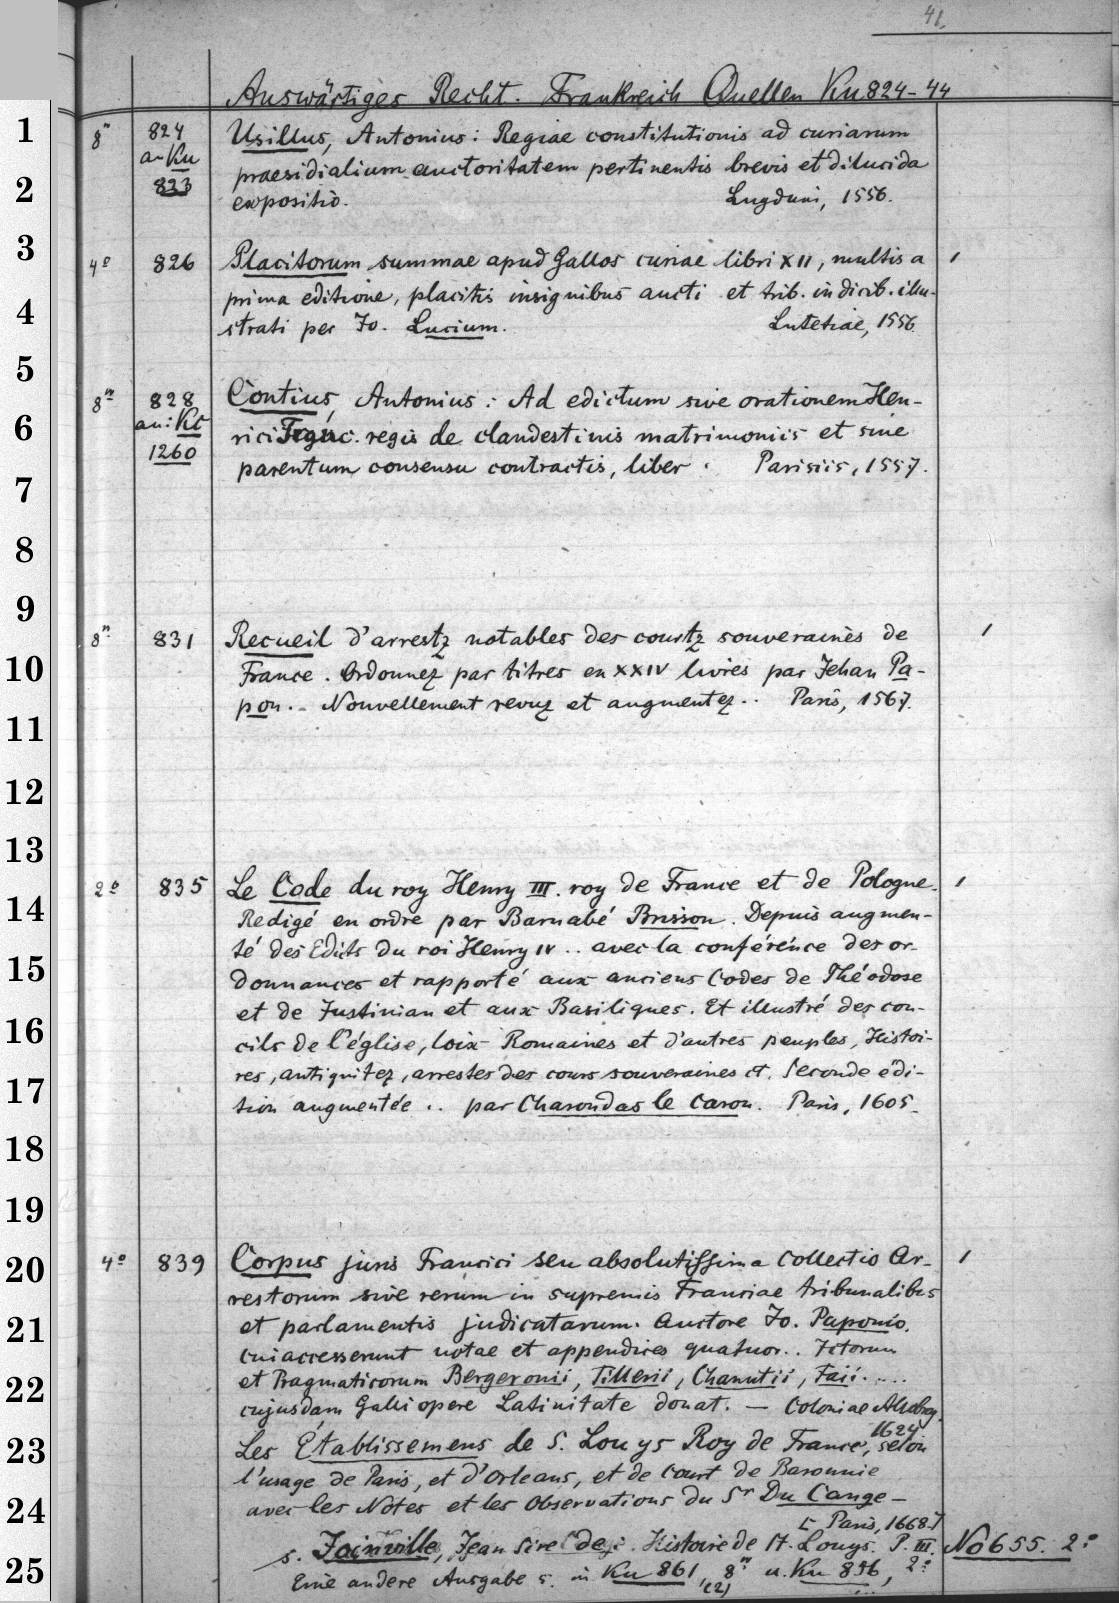 41.
Auswärtiges Recht. Frankreich Quellen Ku 824-44
1
8º 824 Usillus, Antonius: Regiae constitutionis ad curiarum
an Ku praesidialium auctoritatem pertinentis brevis et dilucida
2
823 expositio. Lugduni, 1556.
3
4º 826 Placitorum summae apud Gallos curiae libri XII, multis a
prima editione, placitis insignibus aucti et trib. indicib. illu-
4
strati per Jo. Lucium. Lutetiae, 1556.
5
8º 828 Contius, Antonius: Ad edictum sive orationem Hen-
6
an: Kc rici regis de clandestinis matrimoniis et sine
1260 parentum consensu contractis, liber. Parisiis, 1557.
7
8
9
8º 831 Recueil d'arrestz notables des courtz souveraines de
10
France. Ordonnez par titres en XXIV livres par Jehan Pa-
pon.. Nouvellement revuz et augmentez.. Paris, 1567.
11
12
13
2º 835 Le Code du roy Henry III. roy de France et de Pologne.
14
Redigé en ordre par Barnabé Brisson. Depuis augmen-
té des Edits du roi Henry IV .. avec la conférence des or-
15
donnances et rapporté aux anciens Codes de Théodose
et de Justinian et aux Basiliques. Et illustré des con-
16
cils de l'église, loix Romaines et d'autres peuples, Histoi-
res, antiquitez, arrestes des cours souveraines et. Seconde édi-
17
tion augmentée .. par Charondas le Caron. Paris, 1605.
18
19
4º 839 Corpus juris Francici seu absolutissima collectio Ar-
20
restorum sive rerum in supremis Franciae tribunalibus
21
et parlamentis judicatarum. Auctore Jo. Paponio.
cui accesserunt notae et appendices quatuor.. Jctorum
22
et Pragmaticorum Bergeronii, Tillerii, Chanutii, Faii.....
cujusdam Galli opere Latinitate donat. — Coloniae Allobrog.
1624
23
Les Établissemens de S. Louys Roy de France, selon
l'usage de Paris, et d'Orleans, et de court de Baronnie
24
avec les Notes et les Observations du Sr Du Cange —
[Paris, 1668.]
25
s. Joinville, Jean Sire de: Histoire de St. Louys. P. III. No 655. 2º
Eine andere Ausgabe s. in Ku 861, 8º u. Ku 856, 2º
(2)